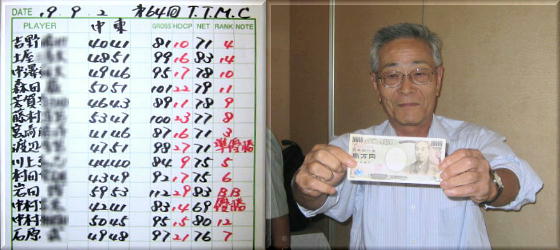 DATE 19. 9. 2 第64回 T.T.M.C
中 東
PLAYER GROSS HDCP NET RANK NOTE
吉野 40 41 81 10 71 4
土屋 48 51 99 16 83 14
中澤 49 46 95 17 78 10
森田 50 51 101 22 79 11
芳賀 46 43 89 11 78 9
藤村 53 47 100 23 77 8
宮崎 41 46 87 16 71 3
渡辺 47 51 98 27 71 準優勝
川上 44 40 84 9 75 5
村田 43 49 92 17 75 6
岩田 59 53 112 29 83 BB
中村 42 41 83 14 69 優勝
中村 50 45 95 15 80 12
石原 49 48 97 21 76 7
10000
日本銀行券
壱万円